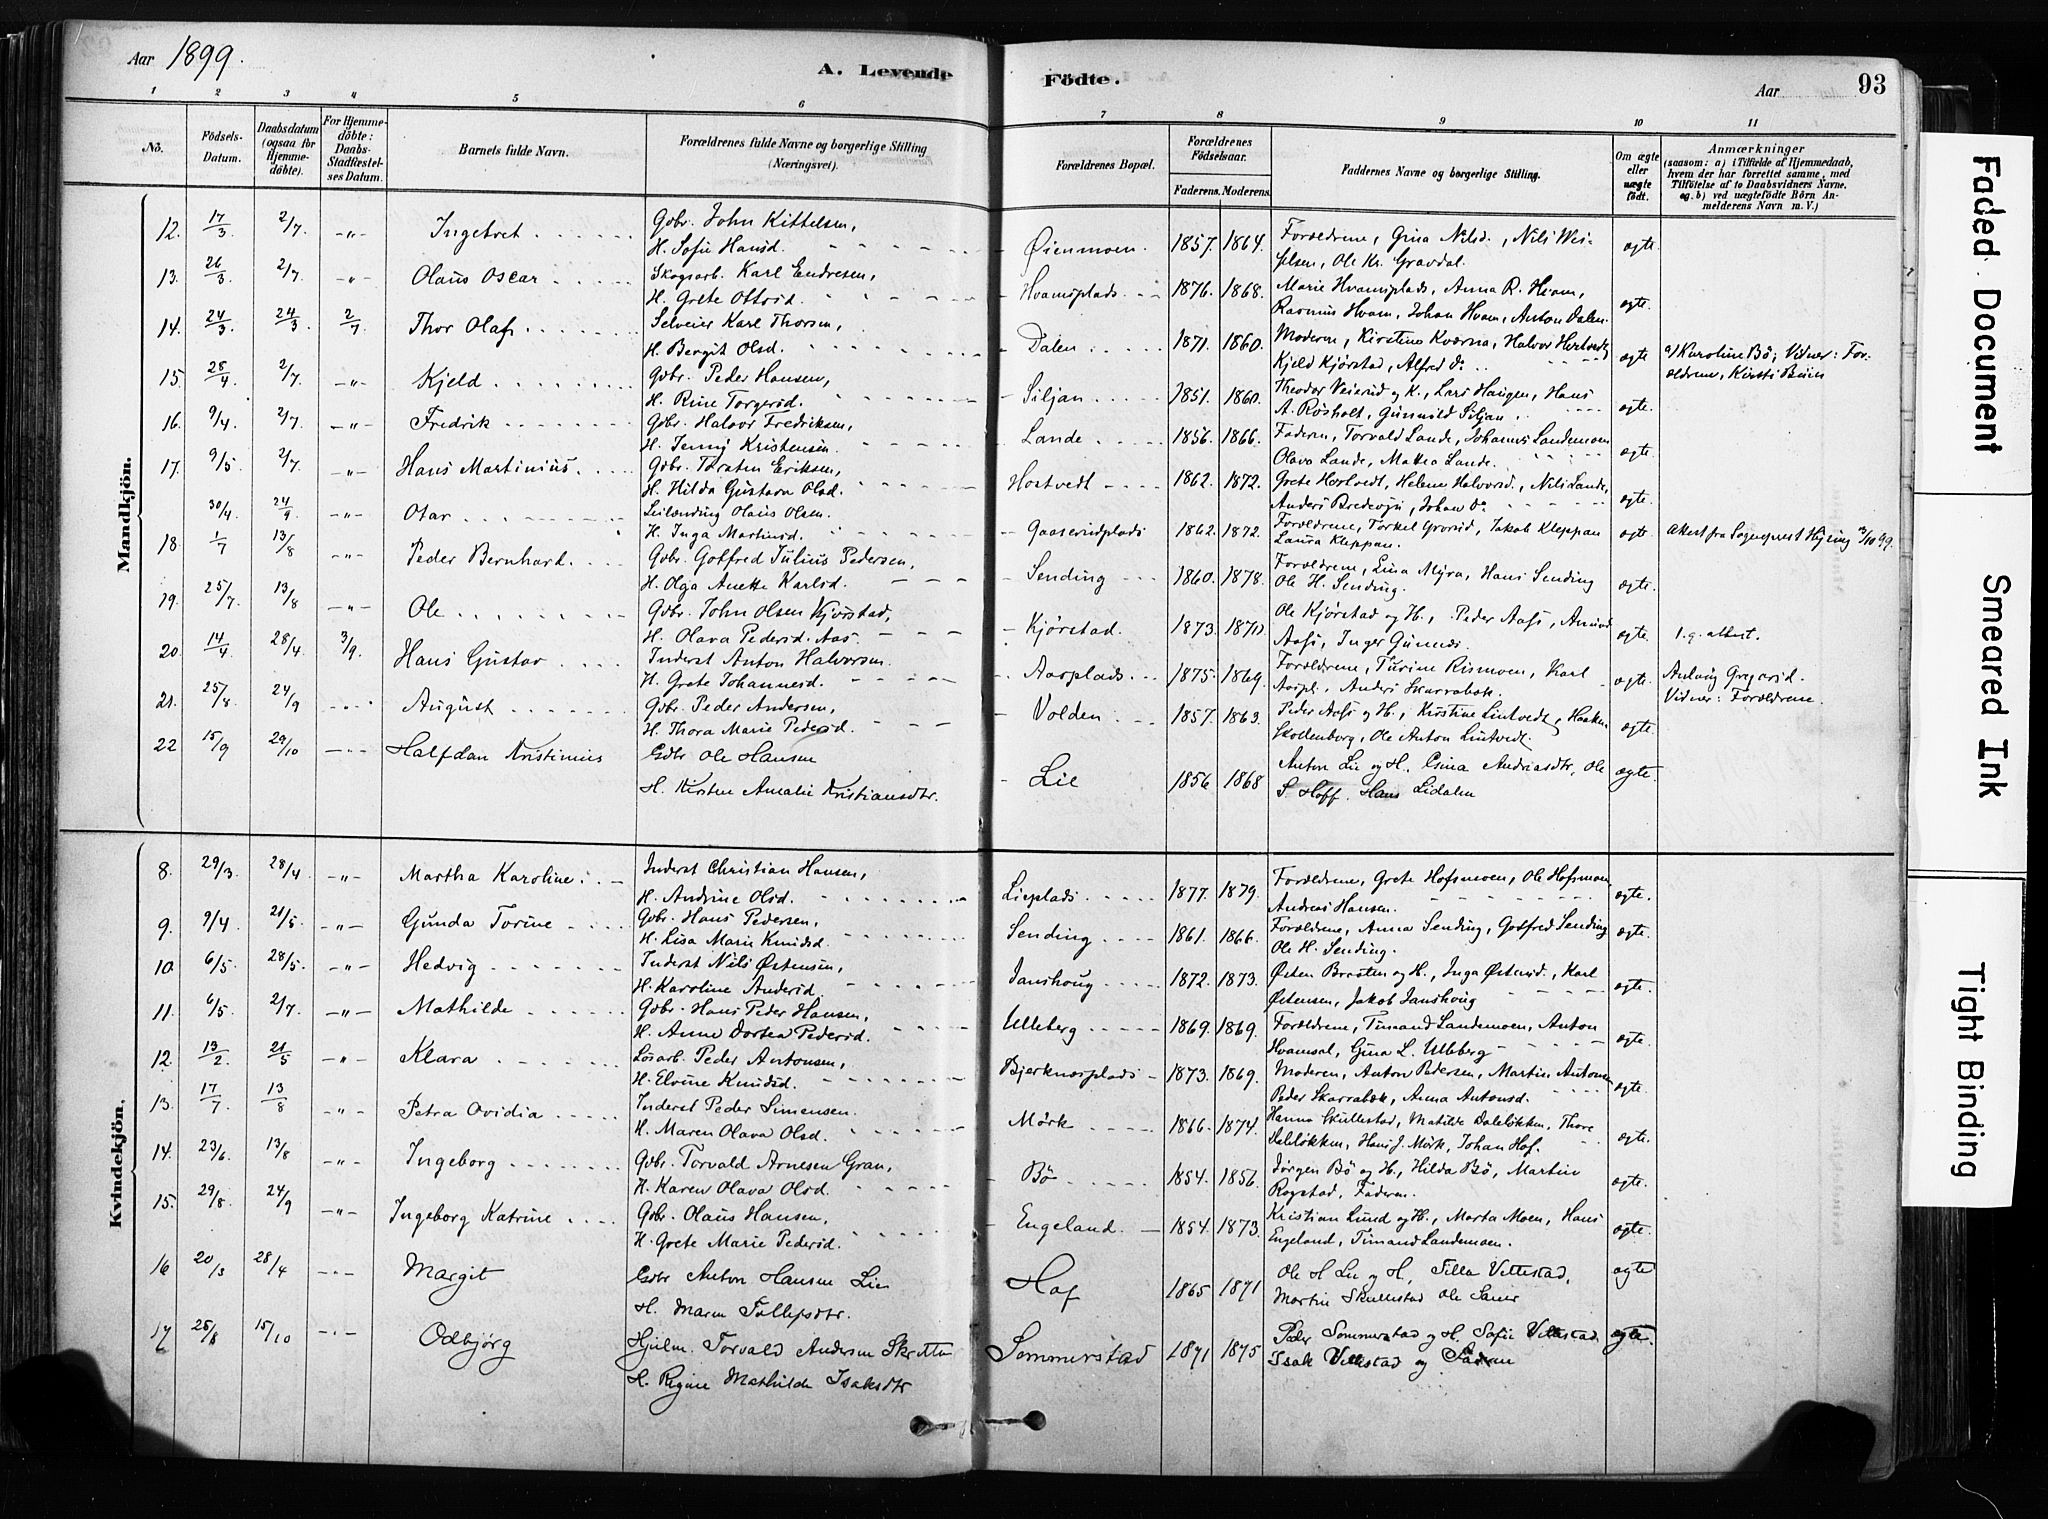 Aar 1899.
A. Levende Födte.
Aar
93
1 2 3 4 5 6 7 8 9 10 11
No.
Födsels-Datum.
Daabsdatum (ogsaa for Hjemme-döbte).
For Hjemme-döbte: Daabs-Stadfæstel-ses Datum.
Barnets fulde Navn.
Forældrenes fulde Navne og borgerlige Stilling (Næringsvei).
Forældrenes Bopæl.
Forældrenes Födselsaar.
Faderens. Moderens.
Faddernes Navne og borgerlige Stilling.
Om ægte eller uægte födt.
Anmærkninger
(saasom: a) i Tilfælde af Hjemmedaab, hvem der har forrettet samme, med Tilföielse af to Daabsvidners Navne, og b) ved uægtefödte Börn Anmelderens Navn m. V.)
Mandkjön.
12. 17/3 2/7 -"- Ingebret Gbr. John Kittelsen, Øienmoen 1857. 1864. Forældrene, Gina Nilsd., Nils ægte.
H. Sofie Hansd. Ole Kr. Gravdal.
13. 26/3 2/7 -"- Olaus Oscar Skogsarb. Karl Endresen, Hvamsplads 1876. 1868. Marie Hvamsplads, Anna R. Hvam, ægte.
H. Grete Ottersd. Rasmus Hvam, Johan Hvam, Anton Dalen.
14. 24/3 24/3 2/7 Thor Olaf Selveier Karl Thorsen, Dalen 1871. 1860. Moderen, Kirstine Kværna, Halvor Hertvedt, ægte. a) Karoline Bö; Vidner: For-
H. Bergit Olsd. Kjeld Kjørstad, Alfred do. ældrene, Kirsti
15. 28/4 2/7 -"- Kjeld Gbr. Peder Hansen, Siljan 1851. 1860. Theodor Veierud og K., Lars Haugen, Hans ægte.
H. Rine Torgersd. A. Røsholt, Gunnild Siljan.
16. 9/4 2/7 -"- Fredrik Gbr. Halvor Fredriksen, Lande 1856. 1866. Faderen, Torvald Lande, Johannes Landemoen ægte.
H. Jenny Kristensen Olava Lande, Mattea Lande.
17. 9/5 2/7 -"- Hans Martinius Gbr. Torsten Eriksen, Hostvedt 1862. 1872. Grete Hostvedt, Helene Halvorsd., Nils Lande, ægte.
H. Hilda Gustava Olsd. Anders Johan do
30/4 24/9 -"- Otar Leilænding Olaus Olsen. Gaaserudplads 1862. 1872. Forældrene, Torkel Jakob Kleppan ægte Attest fra Sogneprest 3/10 99.
H. Inga Martinsd. Laura Kleppan.
18. 1/7 13/8 -"- Peder Bernhard Gbr. Gotfred Julius Pedersen, Sending 1860. 1878. Forældrene, Lina Myra, Hans Sending ægte.
H. Olga Anette Karlsd. Ole H. Sending.
19. 25/7 13/8 -"- Ole Gbr. John Olsen Kjørstad, Kjørstad. 1873. 1870. Ole Kjørstad og H., Peder Aass, ægte.
H. Olava Pedersd. Aas Aass, Inger
20. 14/4 28/4 3/9. Hans Gustav Inderst Anton Halvorsen Aasplads 1875. 1869. Forældrene, Turine Rismoen, Karl ægte. Gregersd.
H. Grete Johannesd. Aaspl., Anders Skarrabæk. Vidner: Forældrene.
21. 25/8 24/9 August Gbr. Peder Andersen, Volden 1857. 1863. Peder Aass og H., Kristine Lintvedt, Haaken ægte.
H. Thora Marie Pedersd. Skollenborg, Ole Anton Lintvedt.
22 15/9 29/10 -"- Halfdan Kristinius Gdbr Ole Hansen Lie 1856 1868 Anton Lie og H. Andreasdtr, Ole ægte.
H. Kirsten Amalie Kristiansdtr. S. Hoff. Hans Lidalen
Kvindekjön.
8. 29/3 28/4 -"- Martha Karoline Inderst Christian Hansen, Lieplads 1877. 1879. Forældrene, Grete Hofsmoen, Ole Hofsmoen ægte.
H. Andrine Olsd. Andreas Hansen.
9. 9/4 21/5 -"- Gunda Torine Gbr. Hans Pedersen, Sending 1861. 1866. Forældrene, Anna Sending, Gotfred Sending ægte.
H. Lisa Marie Knudsd. Ole H. Sending.
10. 6/5 28/5 -"- Hedvig Inderst Nils Østensen, Janshoug 1872. 1873. Østen Braaten og H., Inga Østensd., Karl ægte.
H. Karoline Andersd. Østensen, Jakob Janshoug
11. 6/5 2/7 -"- Mathilde Gbr. Hans Peder Hansen, Ulleberg 1869. 1869. Forældrene, Timand Landemoen, Anton ægte.
H. Anne Dortea Pedersd. Hvamsal, Gina L. Ulleberg
12. 13/2 21/5 -"- Klara Løsarb. Peder Antonsen, Bjerknesplads 1873. 1869. Moderen, Anton Pedersen, Martin Antonsen ægte.
H. Elvine Knudsd. Peder Skarrabæk, Anna Antonsd.
13. 17/7 13/8 -"- Petra Ovidia Inderst Peder Simensen. Mørk 1866. 1874. Hanna Skullestad, Matilde Daleløkken, Thore ægte.
H. Maren Olava Olsd. Daleløkken, Hans J. Mørk, Johan Hof.
14. 23/6 13/8 -"- Ingeborg Gbr. Torvald Arnesen Gran, Bö 1854. 1856. Jørgen Bö og H., Hilda Bö, Martin ægte.
H. Karen Olava Olsd. Rogstad, Faderen.
15. 29/8 24/9 -"- Ingeborg Katrine Gbr. Olaus Hansen, Engeland. 1854. 1873. Kristian Lund og H., Marta Moen, Hans ægte.
H. Grete Marie Pedersd. Engeland, Timand Landemoen.
16 20/3 28/4 -"- Margit Gdbr Anton Hansen Lie Hof 1865 1871 Ole H Lie og H, Silla Villestad, ægte
H. Maren Tollefsdtr. Martin Skullestad Ole
17 25/8 15/10 -"- Odbjørg Hjulm. Torvald Andersen Sommerstad 1871 1875 Peder Sommerstad og H. Sofie Villestad ægte.
H. Regine Mathilde Isaksdtr Isak Villestad og Faderen
Faded Document
Smeared Ink
Tight Binding